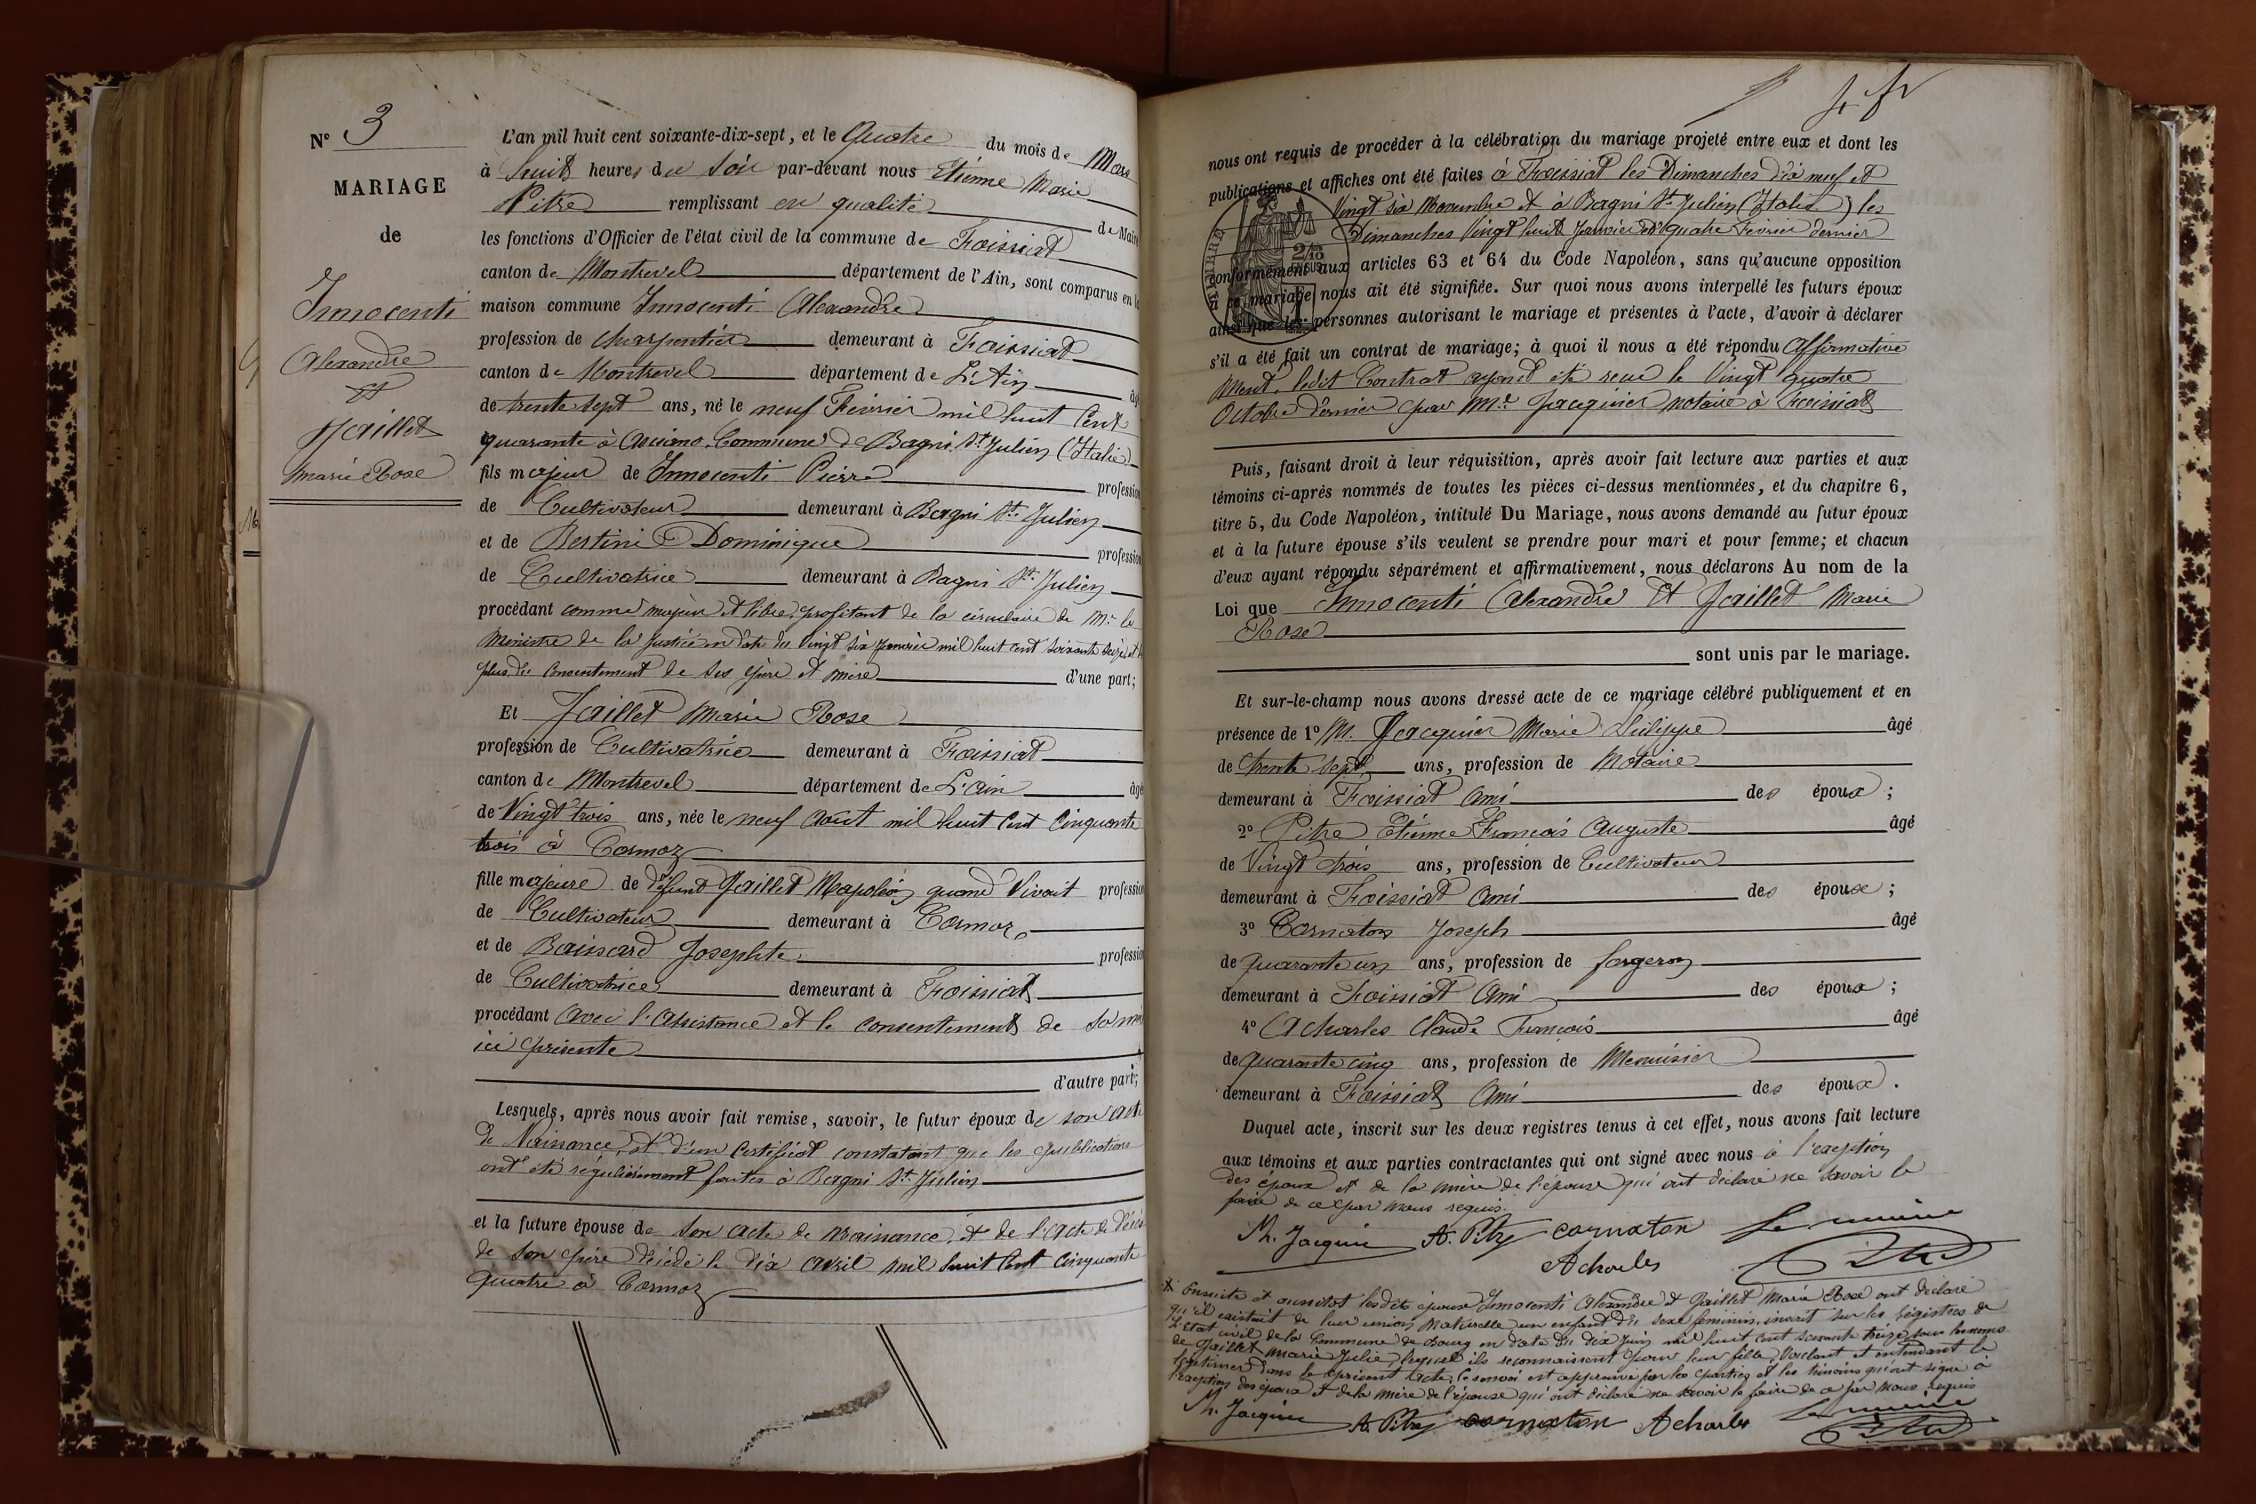 N° 3
MARIAGE
de
Innocenti
Alexandre
et
Jaillet
Marie Rose
L'an mil huit cent soixante-dix-sept, et le Quatre du mois de Mars
à huit heures du Soir par-devant nous Etienne Marie
Pitre remplissant en qualité de Maire
les fonctions d'Officier de l'état civil de la commune de Foissiat
canton de Montrevel département de l'Ain, sont comparus en la
maison commune Innocenti Alexandre
profession de charpentier demeurant à Foissiat
canton de Montrevel département de L'Ain âgé
de trente sept ans, né le neuf Février mil huit Cent
quarante à Asciano Commune de Bagni St Julien (Italie)
fils majeur de Innocenti Pierre profession
de Cultivateur demeurant à Bagni St. Julien
et de Bertini Dominique profession
de Cultivatrice demeurant à Bagni St. Julien
procédant comme majeur et libre, profitant de la circulaire de Mr le
Ministre de la Justice en date du vingt six janvier mil huit cent soixante seize et
plus du consentement de ses père et mère d'une part;
Et Jaillet Marie Rose
profession de Cultivatrice demeurant à Foissiat
canton de Montrevel département de L'ain âgée
de Vingt trois ans, née le neuf Août mil huit cent Cinquante
trois à Cormoz
fille majeure de défunt Jaillet Napoléon quand Vivait profession
de Cultivateur demeurant à Cormoz
et de Boinard Josephte profession
de Cultivatrice demeurant à Foissiat
procédant avec l'assistance et le consentement de sa mère
ici présente
d'autre part;
Lesquels, après nous avoir fait remise, savoir, le futur époux de son acte
de Naissance, et d'un Certificat constatant que les publications
ont été régulièrement faites à Bagni St. Julien
et la future épouse de son acte de naissance, et de l'acte de décès
de son père décédé le dix avril mil huit Cent Cinquante
quatre à Cormoz
nous ont requis de procéder à la célébration du mariage projeté entre eux et dont les
publications et affiches ont été faites à Foissiat les Dimanches dix neuf et
Vingt six Novembre et à Bagni St. Julien (Italie) les
Dimanches Vingt huit Janvier et quatre Février dernier
conformément aux articles 63 et 64 du Code Napoléon, sans qu'aucune opposition
à ce mariage nous ait été signifiée. Sur quoi nous avons interpellé les futurs époux
ainsi que les personnes autorisant le mariage et présentes à l'acte, d'avoir à déclarer
s'il a été fait un contrat de mariage; à quoi il nous a été répondu Affirmative
ment, ledit Contrat ayant été reçu le Vingt quatre
Octobre dernier par Me Jacquier notaire à Foissiat
Puis, faisant droit à leur réquisition, après avoir fait lecture aux parties et aux
témoins ci-après nommés de toutes les pièces ci-dessus mentionnées, et du chapitre 6,
titre 5, du Code Napoléon, intitulé Du Mariage, nous avons demandé au futur époux
et à la future épouse s'ils veulent se prendre pour mari et pour femme; et chacun
d'eux ayant répondu séparément et affirmativement, nous déclarons Au nom de la
Loi que Innocenti Alexandre Et Jaillet Marie
Rose
sont unis par le mariage.
Et sur-le-champ nous avons dressé acte de ce mariage célébré publiquement et en
présence de 1° M. Jacquier Marie Philippe âgé
de trente sept ans, profession de Notaire
demeurant à Foissiat Ami des époux;
2° Pitre Etienne François Auguste âgé
de Vingt trois ans, profession de Cultivateur
demeurant à Foissiat Ami des époux;
3° Cornaton Joseph âgé
de quarante un ans, profession de forgeron
demeurant à Foissiat Ami des époux;
4° Acharles Claude François âgé
de quarante cinq ans, profession de Menuisier
demeurant à Foissiat Ami des époux.
Duquel acte, inscrit sur les deux registres tenus à cet effet, nous avons fait lecture
aux témoins et aux parties contractantes qui ont signé avec nous à l'exception
des époux et de la mère de l'épouse qui ont déclaré ne savoir le
faire de ce par nous requis.
Ph. Jacquier A. Pitre cornaton Le maire
Acharles Pitre
Ensuite et aussitôt lesdits époux Innocenti Alexandre et Jaillet Marie Rose ont déclaré
qu'il existait de leur union Naturelle un enfant du sexe féminin, inscrit sur les registres de
L'état civil de la Commune de Bourg en date du dix Juin mil huit cent soixante treize sous les noms
de Jaillet Marie Julie, lequel ils reconnaissent pour leur fille, Voulant et entendant le
légitimer dans le présent Acte, le renvoi est approuvé par les parties et les témoins qui ont signé à
l'exception des époux et de la mère de l'épouse qui ont déclaré ne savoir le faire de ce par nous requis
Ph. Jacquier A. Pitre cornaton Acharles Le maire
Pitre